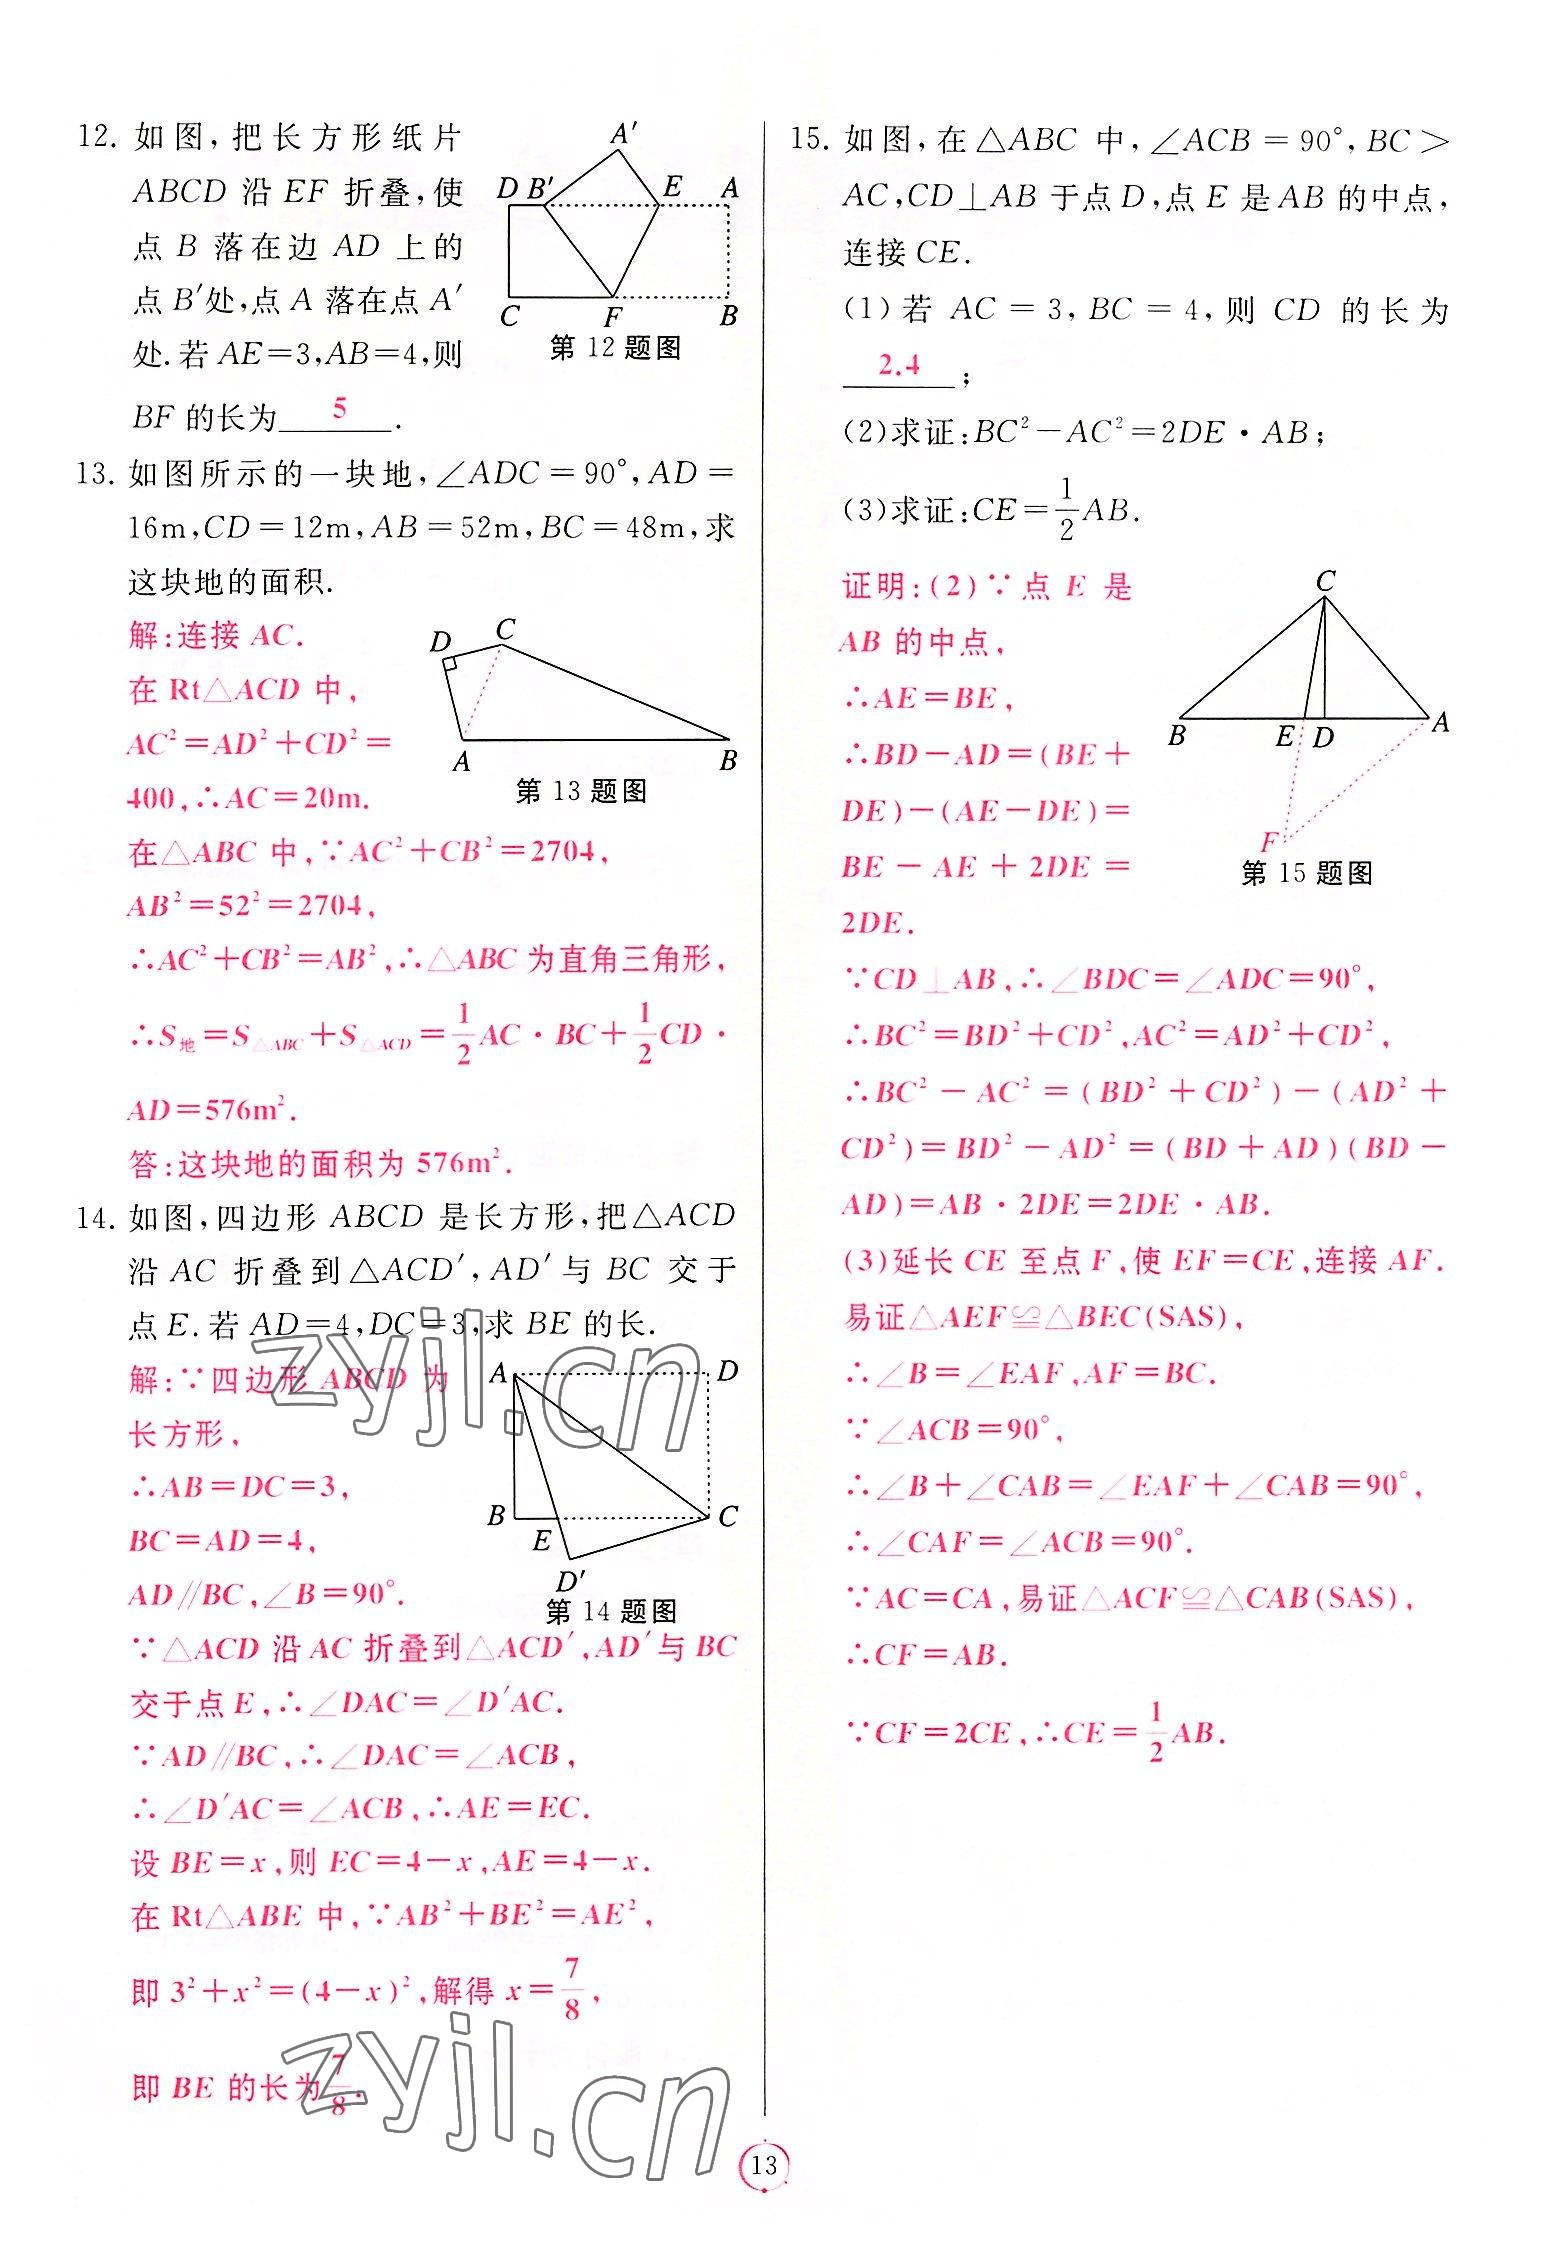 12. 如图，把长方形纸片
ABCD 沿 EF 折叠，使
点 B 落在边 AD 上的
点 B′处，点 A 落在点 A′
处. 若 AE＝3，AB＝4，则
BF 的长为 5 .
A′
D B′ E A
C F B
第 12 题图
13. 如图所示的一块地，∠ADC＝90°，AD＝
16m，CD＝12m，AB＝52m，BC＝48m，求
这块地的面积.
解：连接 AC.
在 Rt△ACD 中，
AC²＝AD²＋CD²＝
400，∴AC＝20m.
D C
A B
第 13 题图
在△ABC 中，∵AC²＋CB²＝2704，
AB²＝52²＝2704，
∴AC²＋CB²＝AB²，∴△ABC 为直角三角形，
∴S地＝S△ABC＋S△ACD＝1/2 AC·BC＋1/2 CD·
AD＝576m².
答：这块地的面积为 576m².
14. 如图，四边形 ABCD 是长方形，把△ACD
沿 AC 折叠到△ACD′，AD′与 BC 交于
点 E. 若 AD＝4，DC＝3，求 BE 的长.
解：∵四边形 ABCD 为
长方形，
∴AB＝DC＝3，
BC＝AD＝4，
AD∥BC，∠B＝90°.
A D
B E C
D′
第 14 题图
∵△ACD 沿 AC 折叠到△ACD′，AD′与 BC
交于点 E，∴∠DAC＝∠D′AC.
∵AD∥BC，∴∠DAC＝∠ACB，
∴∠D′AC＝∠ACB，∴AE＝EC.
设 BE＝x，则 EC＝4－x，AE＝4－x.
在 Rt△ABE 中，∵AB²＋BE²＝AE²，
即 3²＋x²＝(4－x)²，解得 x＝7/8，
即 BE 的长为 7/8.
15. 如图，在△ABC 中，∠ACB＝90°，BC＞
AC，CD⊥AB 于点 D，点 E 是 AB 的中点，
连接 CE.
(1) 若 AC＝3，BC＝4，则 CD 的长为
2.4 ；
(2)求证：BC²－AC²＝2DE·AB；
(3)求证：CE＝1/2 AB.
证明：(2)∵点 E 是
AB 的中点，
∴AE＝BE，
∴BD－AD＝(BE＋
DE)－(AE－DE)＝
BE－AE＋2DE＝
2DE.
C
B E D A
F
第 15 题图
∵CD⊥AB，∴∠BDC＝∠ADC＝90°，
∴BC²＝BD²＋CD²，AC²＝AD²＋CD²，
∴BC²－AC²＝(BD²＋CD²)－(AD²＋
CD²)＝BD²－AD²＝(BD＋AD)(BD－
AD)＝AB·2DE＝2DE·AB.
(3)延长 CE 至点 F，使 EF＝CE，连接 AF.
易证△AEF≌△BEC(SAS)，
∴∠B＝∠EAF，AF＝BC.
∵∠ACB＝90°，
∴∠B＋∠CAB＝∠EAF＋∠CAB＝90°，
∴∠CAF＝∠ACB＝90°.
∵AC＝CA，易证△ACF≌△CAB(SAS)，
∴CF＝AB.
∵CF＝2CE，∴CE＝1/2 AB.
zyjl.cn
zyjl.cn
13